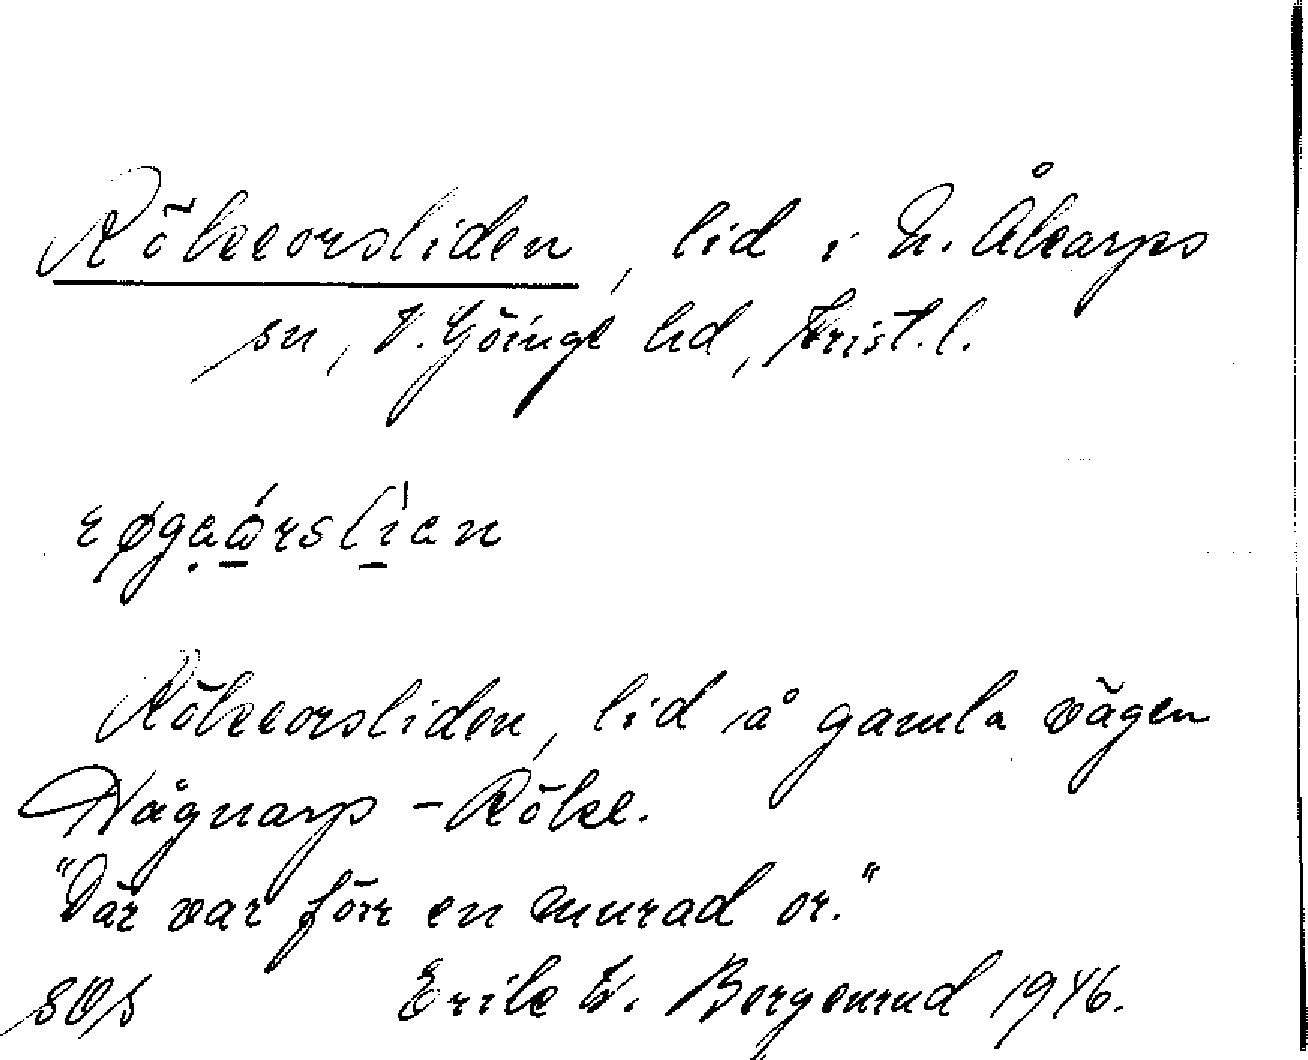 Rökeorsliden, lid i N. Åkarps
sn, V. Göinge hd, Krist. l.
røgaórslían
Rökeorsliden, lid å gamla vägen
Hågnarp - Röke.
"Där var förr en murad or."
SOS Erik W. Bergenrud 1946.